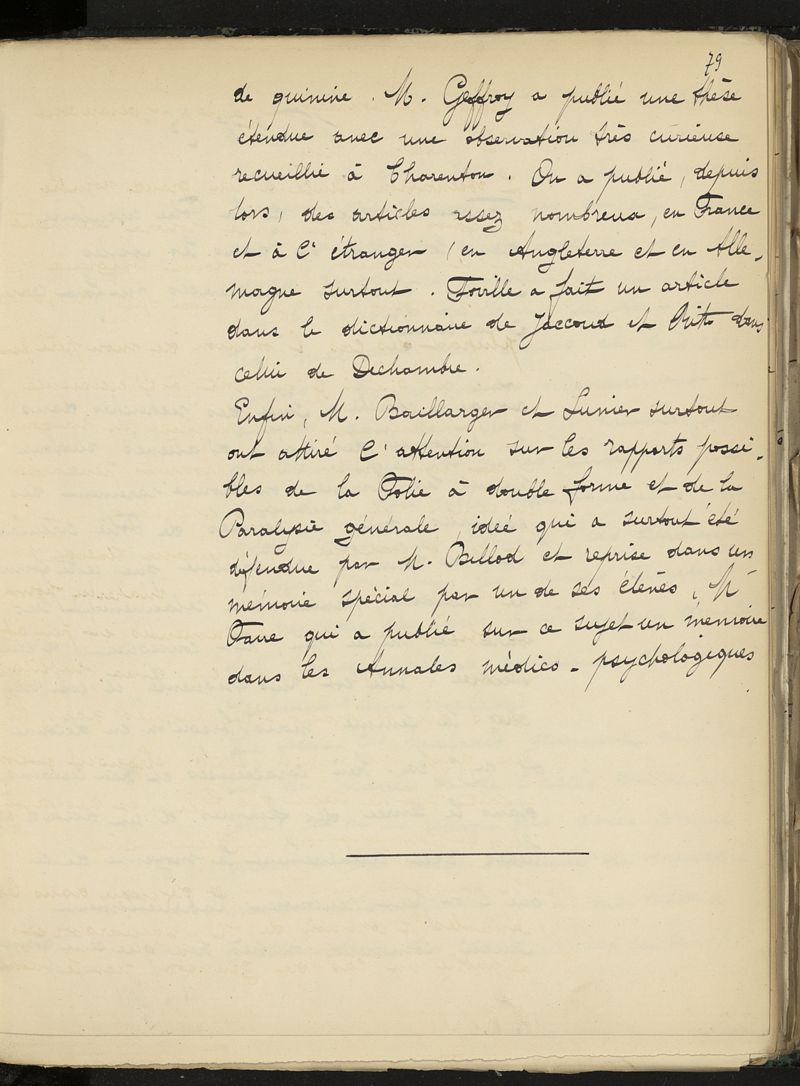 79
de quinine. M. Geffroy a publié une thèse
étendue avec une observation très curieuse
recueillie à Charenton. On a publié, depuis
lors, des articles assez nombreux, en France
et à l'étranger (en Angleterre et en Alle-
magne surtout. Foville a fait un article
dans le dictionnaire de Jaccoud et Ritti dans
celui de Dechambre.
Enfin, M. Baillarger et Lunier surtout
ont attiré l'attention sur les rapports possi-
bles de la Folie à double forme et de la
Paralysie générale, idée qui a surtout été
défendue par M. Billod et reprise dans un
mémoire spécial par un de ses élèves, M
qui a publié sur ce sujet un mémoire
dans les Annales médico-psychologiques